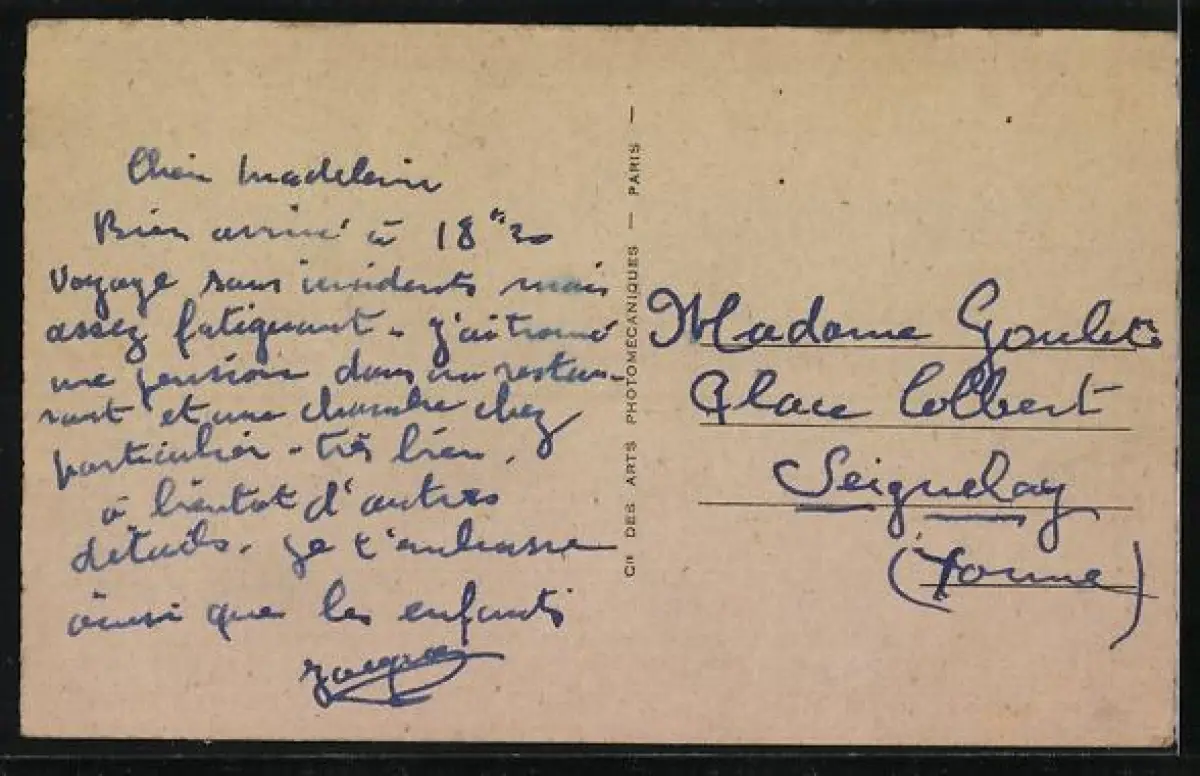 Chère Madeleine
Bien arrivé à 18h30
Voyage sans incidents mais
assez fatiguant - J'ai trouvé
une pension dans un restau-
rant et une chambre chez
particulier - très bien.
à bientot d'autres
détails. Je t'embrasse
ainsi que les enfants
Cie DES ARTS PHOTOMÉCANIQUES — PARIS —
Madame
Place Colbert
Seignelay
(Yonne)